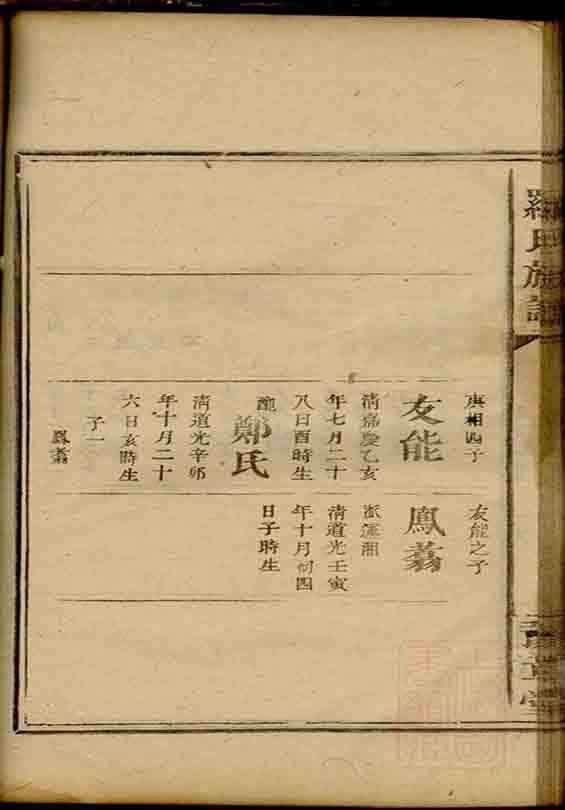 羅氏族譜
庚相四子
友能
清嘉慶乙亥
年七月二十
八日酉時生
鄭氏
清道光辛卯
年十月二十
六日亥時生
子一
鳳翥
友能之子
鳳翥
派運湘
清道光壬寅
年十月初四
日子時生